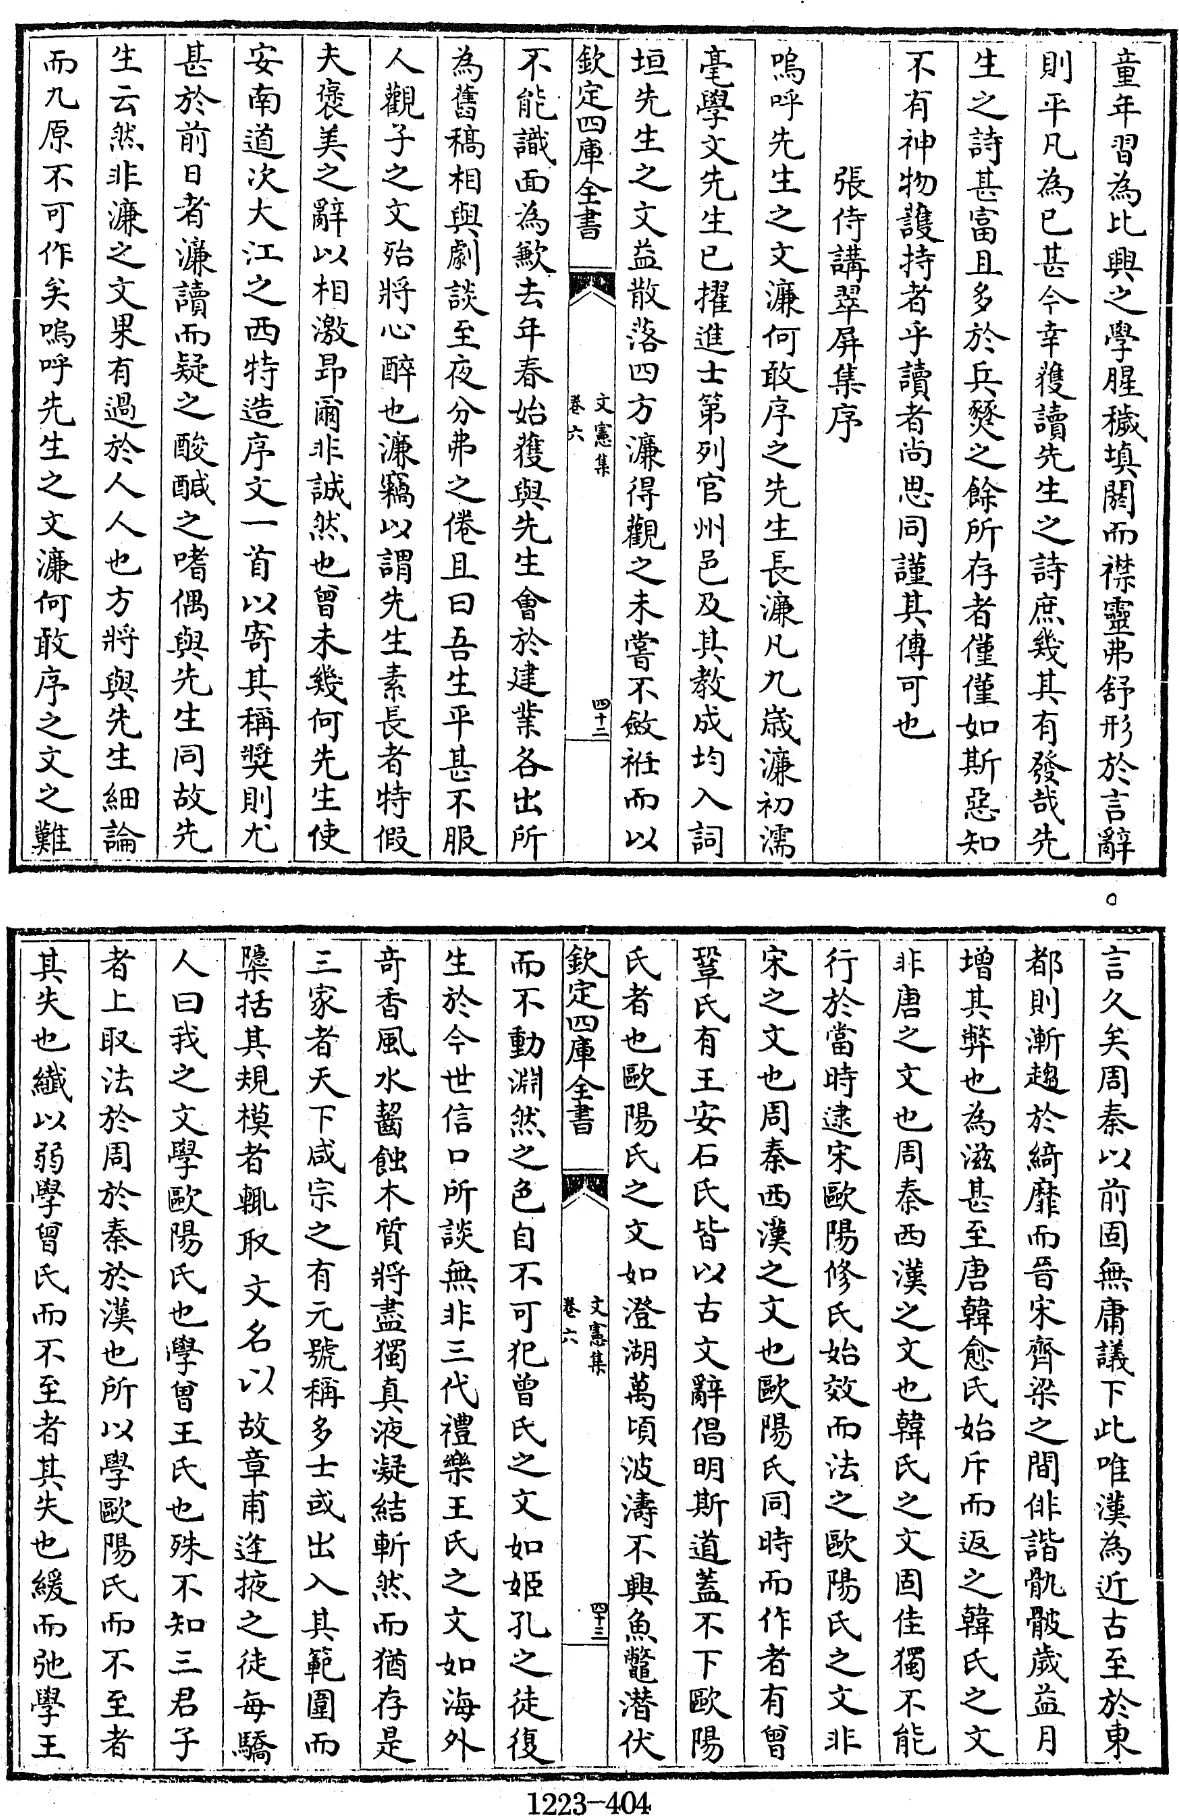 童年習為比興之學腥穢填閼而襟靈弗舒形於言辭
則平凡為已甚今幸獲讀先生之詩庶幾其有發哉先
生之詩甚富且多於兵燹之餘所存者僅僅如斯惡知
不有神物護持者乎讀者尚思同謹其傳可也
張侍講翠屏集序
嗚呼先生之文濂何敢序之先生長濂凡九歲濂初濡
毫學文先生已擢進士第列官州邑及其教成均入詞
垣先生之文益散落四方濂得觀之未嘗不斂袵而以
欽定四庫全書
文憲集
卷六
四十二
不能識面為歉去年春始獲與先生會於建業各出所
為舊稿相與劇談至夜分弗之倦且曰吾生平甚不服
人觀子之文殆將心醉也濂竊以謂先生素長者特假
夫褒美之辭以相激昻爾非誠然也曾未幾何先生使
安南道次大江之西特造序文一首以寄其稱奬則尤
甚於前日者濂讀而疑之酸醎之嗜偶與先生同故先
生云然非濂之文果有過於人人也方將與先生細論
而九原不可作矣嗚呼先生之文濂何敢序之文之難
言久矣周秦以前固無庸議下此唯漢為近古至於東
都則漸趨於綺靡而晉宋齊梁之間俳諧骫骳歲益月
增其弊也為滋甚至唐韓愈氏始斥而返之韓氏之文
非唐之文也周秦西漢之文也韓氏之文固佳獨不能
行於當時逮宋歐陽修氏始效而法之歐陽氏之文非
宋之文也周秦西漢之文也歐陽氏同時而作者有曾
鞏氏有王安石氏皆以古文辭倡明斯道蓋不下歐陽
氏者也歐陽氏之文如澄湖萬頃波濤不興魚鼈潛伏
欽定四庫全書
文憲集
卷六
四十三
而不動淵然之色自不可犯曾氏之文如姬孔之徒復
生於今世信口所談無非三代禮樂王氏之文如海外
奇香風水齧蝕木質將盡獨真液凝結嶄然而猶存是
三家者天下咸宗之有元號稱多士或出入其範圍而
檃括其規模者輒取文名以故章甫逢掖之徒每驕
人曰我之文學歐陽氏也學曾王氏也殊不知三君子
者上取法於周於秦於漢也所以學歐陽氏而不至者
其失也纖以弱學曾氏而不至者其失也緩而弛學王
1223-404